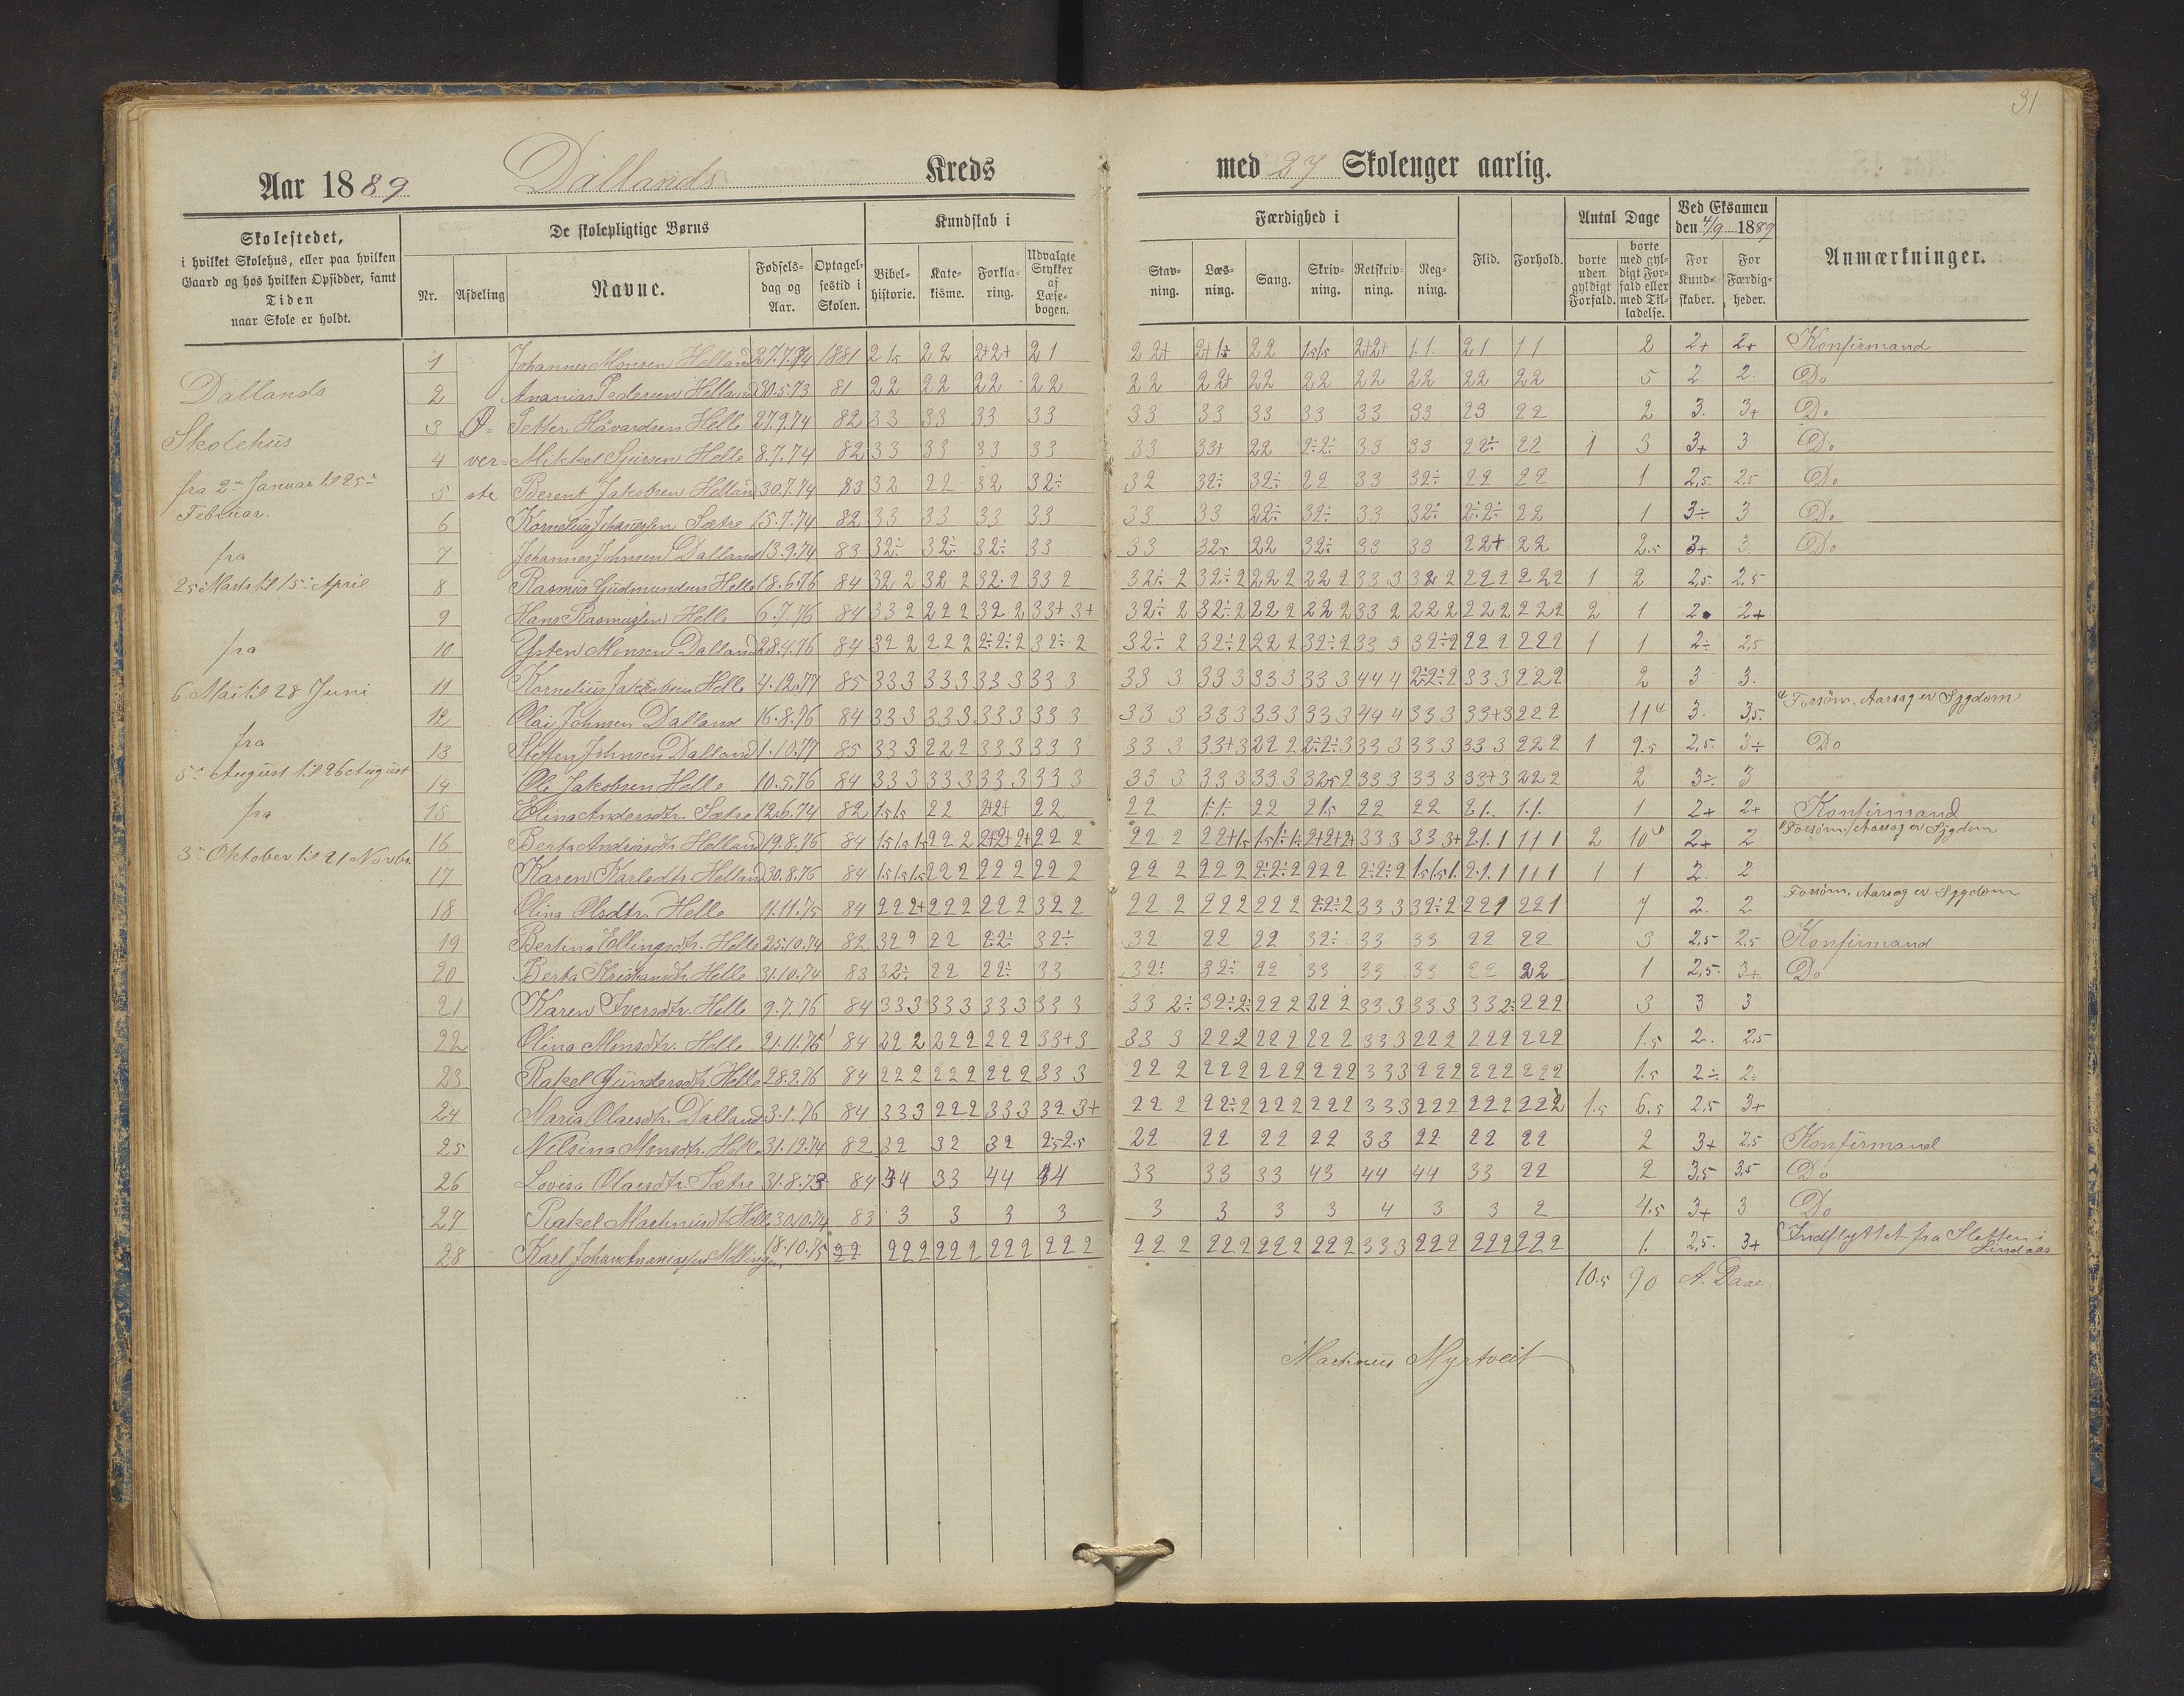 31
Aar 1889 Dallands Kreds med 27 Skolenger aarlig.
Skolestedet,
i hvilket Skolehus, eller paa hvilken
Gaard og hos hvilken Opsidder, samt
Tiden
naar Skole er holdt.
De skolepligtige Børns
Nr. Afdeling Navne. Fødselsdag og Aar. Optagelsestid i Skolen.
Kundskab i
Bibelhistorie. Katekisme. Forklaring. Udvalgte Stykker af Læsebogen.
Færdighed i
Stavning. Læsning. Sang. Skrivning. Retskrivning. Regning.
Flid. Forhold.
Antal Dage
borte uden gyldigt Forfald. borte med gyldigt Forfald eller med Tilladelse.
Ved Eksamen
den 4/9 1889
For Kundskaber. For Færdigheder.
Anmærkninger.
Dallands
Skolehus
fra 2 Januar til 25
Februar.
fra
25 Marts til 15 April
fra
6 Mai til 28 Juni
fra
5 August til 26 August
fra
3 Oktober til 21 Novbr.
Øverste
1 Johannes Monsen Helland 27.7.74 1881 2 1.5 22 2+2+ 21 22+ 22 1.5 1.5 2+2+ 1.1 21 11 2 2+ 2+ Konfirmand
2 Ananias Pedersen Helland 30.5.73 81 22 22 22 22 22 22+ 22 22 22 22 22 22 5 2. 2. Do
3 Petter Håvardsen Helle 27.9.74 82 33 33 33 33 33 33 33 33 33 33 23 22 2 3. 3+ Do
4 Mikkel Sjursen Helle 8.7.74 82 33 33 33 33 33 33+ 22 2÷2÷ 33 33 22÷ 22 1 3 3+ 3 Do
5 Berent Jakobsen Helland 30.7.74 83 32 22 32 32÷ 32 32÷ 32÷ 22 33 32÷ 22 22 1 2,5. 2,5 Do
6 Kornelius Johannessen Sætre 15.7.74 82 33 33 33 33 33 33 22÷ 32÷ 33 32÷ 2÷2÷ 22 1 3÷ 3 Do
7 Johannes Johnsen Dalland 13.9.74 83 32÷ 32÷ 32÷ 33 33 32.5 22 32÷ 33 33 22+ 22 2.5 3+ 3 Do
8 Rasmus Gudmundsen Helle 18.6.76 84 32 2 32 2 32 2 33 2 222 222 333 222 222 1 2 2,5. 2,5
9 Hans Rasmussen Helle 6.7.76 84 33 2 222 32 2 33+ 3+ 32÷ 2 32÷ 2 222 222 33 2 222 222 222 2 1 2. 2+
10 Østen Monsen Dalland 28.4.76 84 32 2 222 2÷2÷2 32÷ 2 32÷ 2 32÷2 222 32÷2 33 3 32÷2 222 222 1 1 2÷ 2,5
11 Kornelius Jakobsen Helle 4.12.77 85 333 333 333 333 33 3 333 333 333 444 2÷2÷2 333 222 2 3 3.
12 Olai Johnsen Dalland 16.8.76 84 333 333 333 333 33 3 333 333 333 444 333 33+3 222 11 3. 3,5. Forsøm. Aarsag er Sygdom
13 Steffen Johnsen Dalland 1.10.77 85 333 222 333 333 33 3 33+3 222 2÷2÷3 333 333 333 222 1 9.5 2,5. 3÷ Do
14 Ole Jakobsen Helle 10.5.76 84 333 333 333 333 33 3 333 333 32.52 333 333 33+3 222 2 3÷ 3
15 Elina Andersdtr. Sætre 12.6.74 82 1.5 1.5 22 2+2+ 22 22 1÷1÷ 22 21.5 22 22 21. 1.1. 1 2+ 2+ Konfirmand
16 Berta Andersdtr. Helland 19.8.76 84 222 2+2+2+ 222 22 2 2+2+2+ 333 333+ 2.1.1 111 2 10 2+ 2 Forsøm. Aarsag er Sygdom
17 Karen Karlsdtr. Helland 30.8.76 84 1.5 1.5 1.5 222 222 222 22 2 222 2÷2÷2 222 2÷2÷2 1.5 1.5 1. 2.1.1 111 1 1 2. 2
18 Olina Olsdtr. Helle 11.11.75 84 222+ 222 222 322 22 2 222 222 2÷2÷2 333 32÷2 221 221 7 2. 2 Forsøm. Aarsag er Sygdom
19 Bertina Ellingsdtr. Helle 25.10.74 82 32 22 2÷2÷ 32÷ 32 22 22 32÷ 33 33 22 22 3 2,5 2,5 Konfirmand
20 Berta Kristiansdtr. Helle 31.10.74 83 32÷ 22 22÷ 33 32÷ 32÷ 22 33 33 33 22 22 1 2,5. 3+ Do
21 Karen Iversdtr. Helle 9.7.76 84 333 333 333 333 33 2÷ 32÷2÷ 222 222 333 333 332÷ 222 3 3 3
22 Olina Monsdtr. Helle 21.11.75 84 222 222 222 33+3 33 3 22÷2 222 222 333 222 222 222 1.5 2. 2,5
23 Rakel Gundersdtr. Helle 28.9.76 84 222 222 222 333 22 2 222 222 222 333 222 222 222 1.5 2÷ 2÷
24 Maria Olaisdtr. Dalland 3.1.76 84 333 222 333 323+ 22 2 22÷2 222 222 333 222 222 222 1.5 6.5 2,5 3+
25 Nilsina Monsdtr. Helle 31.12.74 82 32 32 32 2.52.5 22 22 22 22 33 22 22 22 2 3+ 2,5 Konfirmand
26 Lovisa Olaisdtr. Sætre 31.8.73 84 34 33 44 44 33 33 33 43 44 44 33 22 2 3,5 3,5 Do
27 Rakel Martinusdtr. Helle 30.10.74 83 3 3 3 3 3 3 3 3 4 3 3 2 4.5 3+ 3 Do
28 Karl Johan Ananiassen 18.10.75 22 222 222 222 222 22 2 222 222 222 333 222 222 222 1. 2,5. 3+ Indflyttet fra Sletten i
Lindaas
10.5 90 A. Daae.
Martinus Myrtveit